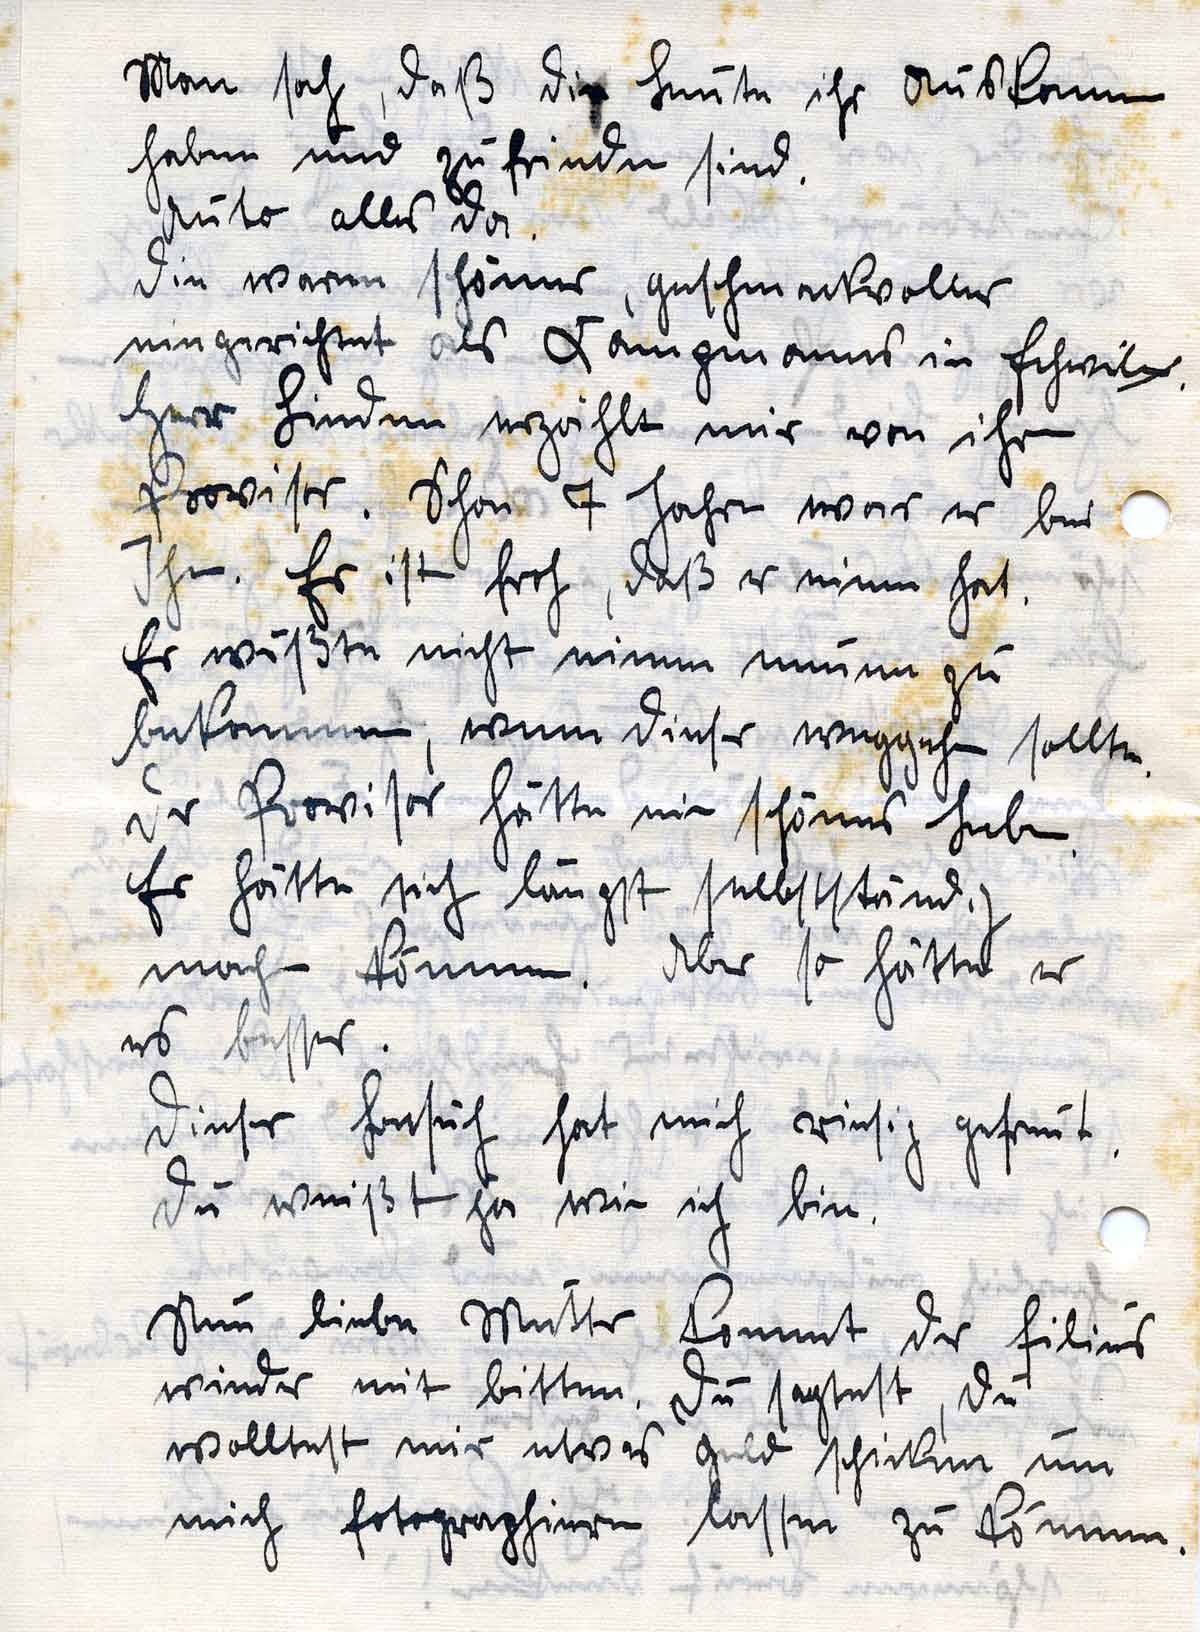 Man sah, daß die Leute ihr Auskommen
haben und zufrieden sind.
Auto alles da.
Die waren schöner, geschmackvoller
eingerichtet als Kampmanns in Eschweiler.
Herr Linden erzählt mir von ihrem
Provisor. Schon 7 Jahre war er bei
Ihm. Er ist froh, daß er einen hat.
Er wüßte nicht einen neuen zu
bekommen, wenn dieser weggehen sollte.
Der Provisor hätte ein schönes Leben.
Er hätte sich längst selbstständig
machen können. Aber so hätte er
es besser.
Dieser Besuch hat mich riesig gefreut.
Du weißt ja wie ich bin.
Nun liebe Mutter kommt der Filius
wieder mit bitten. Du sagtest, Du
wolltest mir etwas Geld schicken um
mich fotographieren lassen zu können.